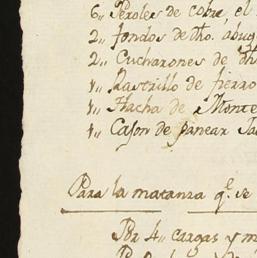 6,, Peroles de cobre, el
2,, fondos de dho. abug
2,, Cucharones de dh
1,, Rastrillo de fierro
1,, Hacha de Monte
1,, Cajon de panear Ja
Para la matanza q.e se
Por 4,, cargas y m